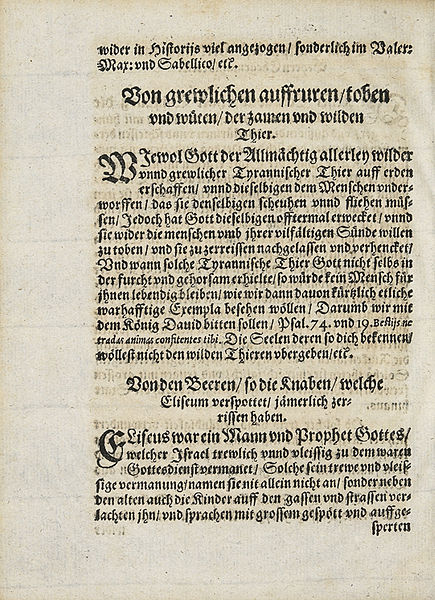 wider in Historijs viel angezogen/ sonderlich im Valer:
Max: vnd Sabellico/ etc.
Von grewlichen auffruren/ toben
vnd wüten/ der zamen vnd wilden
Thier.
WJewol Gott der Allmächtig allerley wilder
vnnd grewlicher Tyrannischer Thier auff erden
erschaffen/ vnnd dieselbigen dem Menschen vnder-
worffen/ das sie denselbigen scheuhen vnnd fliehen müs-
sen/ Jedoch hat Gott dieselbigen offtermal erwecket/ vnnd
sie wider die menschen vmb jhrer vilfältigen Sünde willen
zu toben/ vnd sie zu zerreissen nachgelassen vnd verhencket/
Vnd wann solche Tyrannische Thier Gott nicht selbs in
der furcht vnd gehorsam erhielte/ so würde kein Mensch für
jhnen lebendig bleiben/ wie wir dann dauon kürtzlich etliche
warhafftige Exempla besehen wöllen/ Darumb wir mit
dem König Dauid bitten sollen/ Psal. 74. vnd 19. Bestijs ne
tradas animas confitentes tibi. Die Seelen deren so dich bekennen/
wöllest nicht den wilden Thieren vbergeben/ etc.
Von den Beeren/ so die Knaben/ welche
Eliseum verspottet/ jämerlich zer-
rissen haben.
ELiseus war ein Mann vnd Prophet Gottes/
welcher Israel trewlich vnnd vleissig zu dem waren
Gottesdienst vermanet/ Solche sein trewe vnd vleis-
sige vermanung/ namen sie nit allein nicht an/ sonder neben
den alten auch die Kinder auff den gassen vnd strassen ver-
lachten jhn/ vnd sprachen mit grossem gespött vnd auffge-
sperten